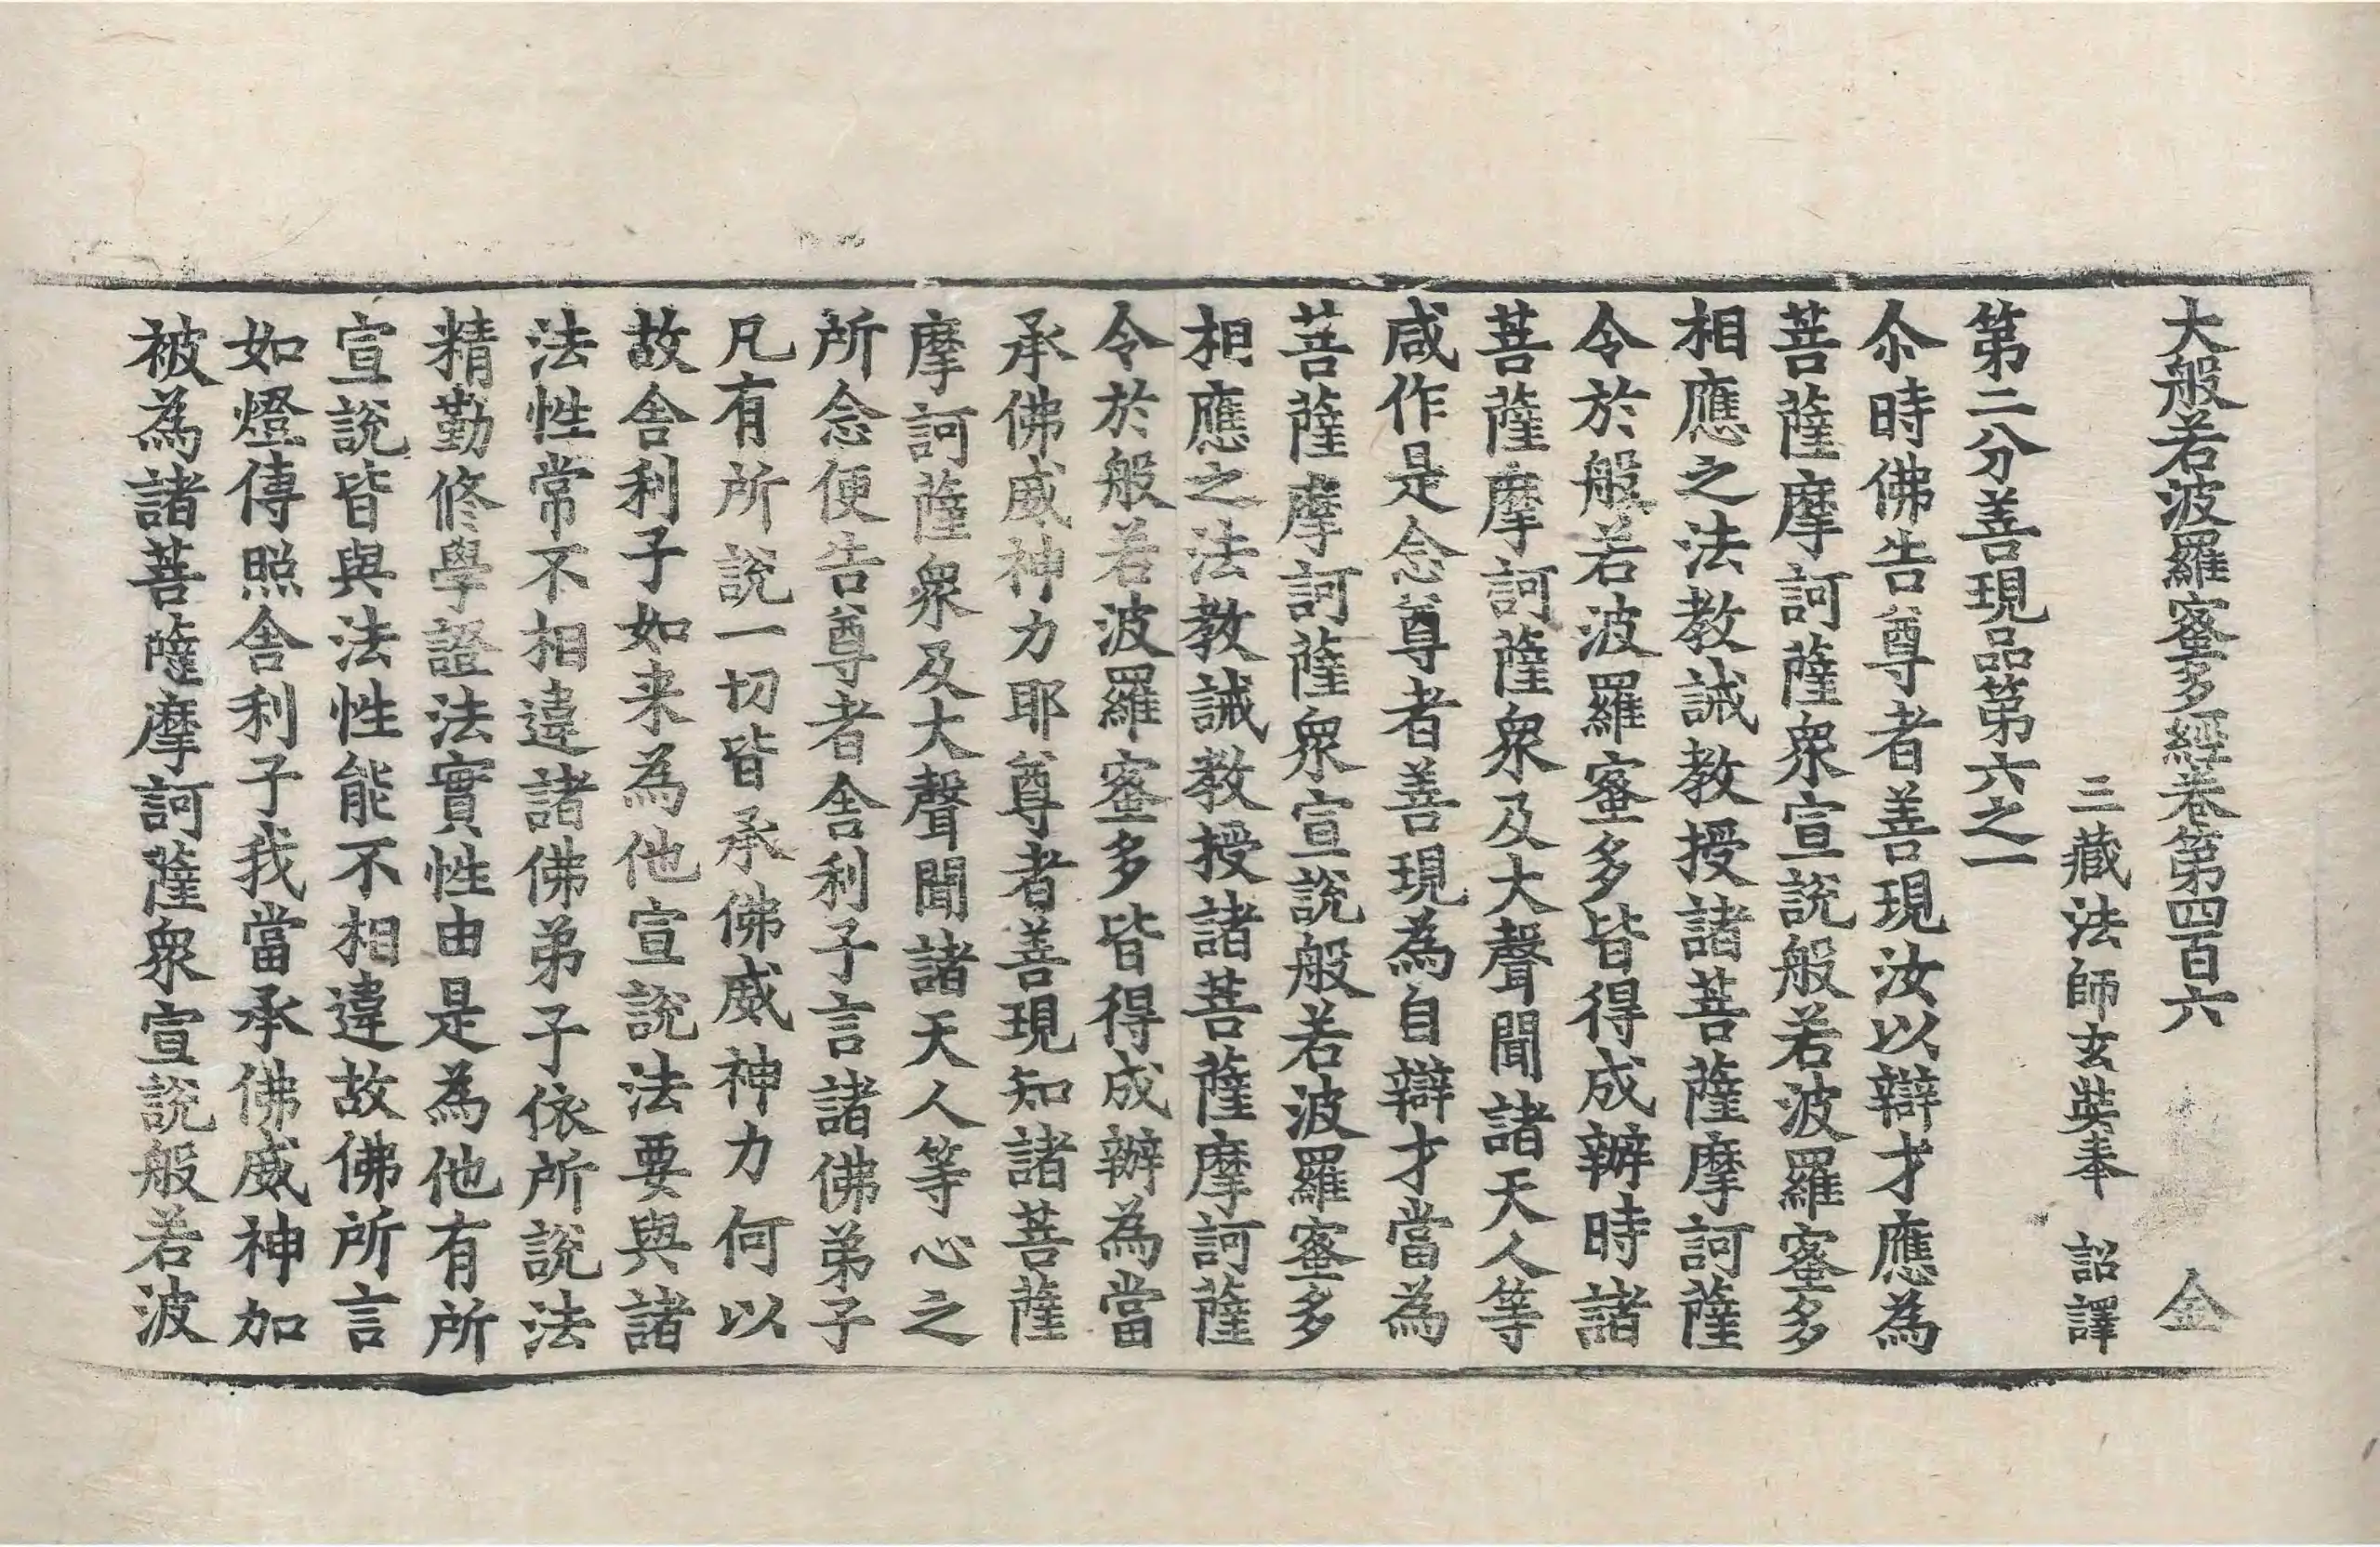 大般若波羅蜜多經卷第四百六 金
三藏法師玄奘奉 詔譯
第二分善現品第六之一
尒時佛告尊者善現汝以辯才應為
菩薩摩訶薩衆宣說般若波羅蜜多
相應之法教誡教授諸菩薩摩訶薩
令於般若波羅蜜多皆得成辦時諸
菩薩摩訶薩衆及大聲聞諸天人等
咸作是念尊者善現為自辯才當為
菩薩摩訶薩衆宣說般若波羅蜜多
相應之法教誡教授諸菩薩摩訶薩
令於般若波羅蜜多皆得成辦為當
承佛威神力耶尊者善現知諸菩薩
摩訶薩衆及大聲聞諸天人等心之
所念便告尊者舍利子言諸佛弟子
凡有所說一切皆承佛威神力何以
故舍利子如来為他宣說法要與諸
法性常不相違諸佛弟子依所說法
精勤修學證法實性由是為他有所
宣說皆與法性能不相違故佛所言
如燈傳照舍利子我當承佛威神加
被為諸菩薩摩訶薩衆宣說般若波